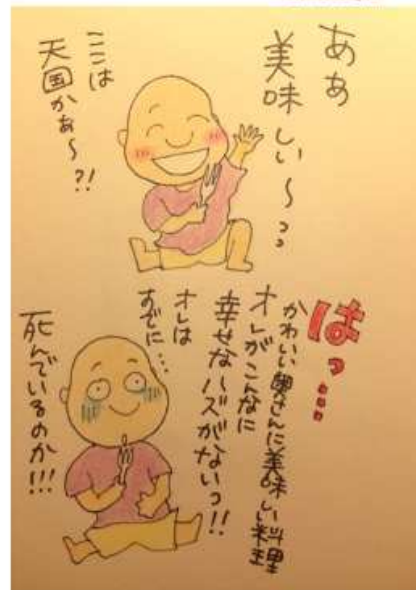 ああ
美味しい～っ
ここは
天国かぁ～?!
はっ…
かわいい奥さんに美味しい料理
オレがこんなに
幸せなハズがないっ!!
オレは
すでに…
死んでいるのか!!!